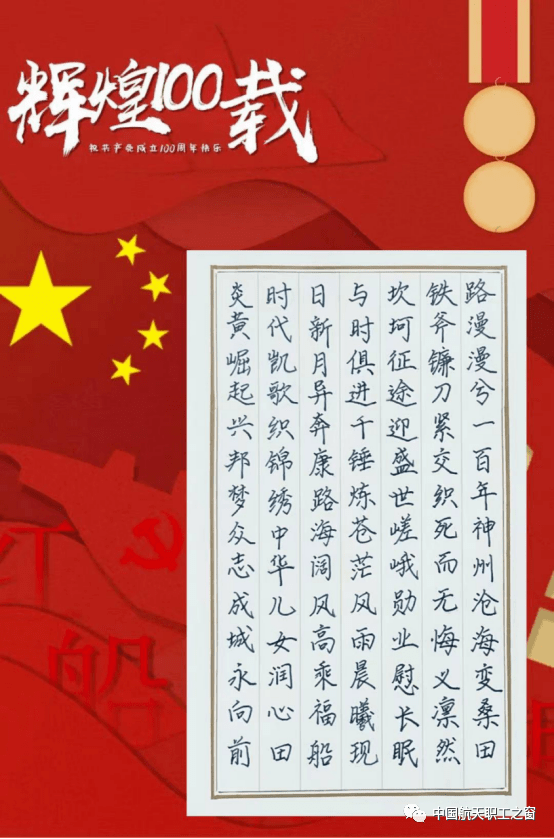 辉煌100载
祝共产党成立100周年快乐
路漫漫兮一百年神州沧海变桑田
铁斧镰刀紧交织死而无悔义凛然
坎坷征途迎盛世嵯峨勋业慰长眠
与时俱进千锤炼苍茫风雨晨曦现
日新月异奔康路海阔风高乘福船
时代凯歌织锦绣中华儿女润心田
炎黄崛起兴邦梦众志成城永向前
红船
中国航天职工之窗